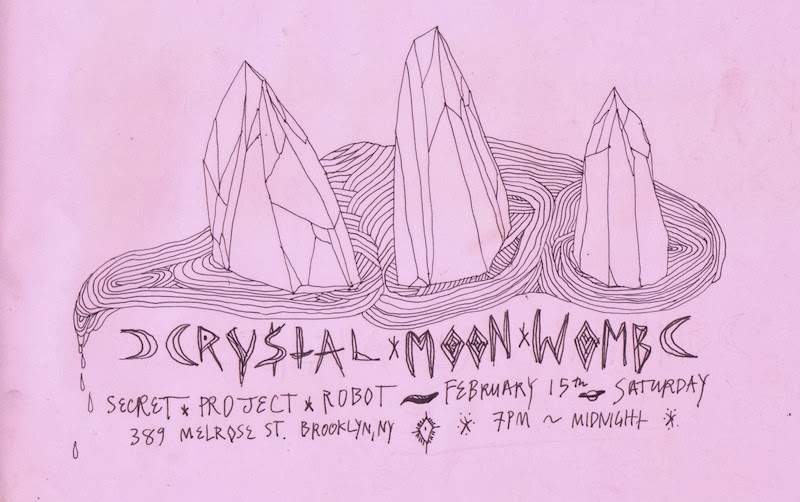 CRYSTAL * MOON * WOMB
SECRET * PROJECT * ROBOT ~ FEBRUARY 15TH ~ SATURDAY
389 MELROSE ST. BROOKLYN, NY * 7PM ~ MIDNIGHT *